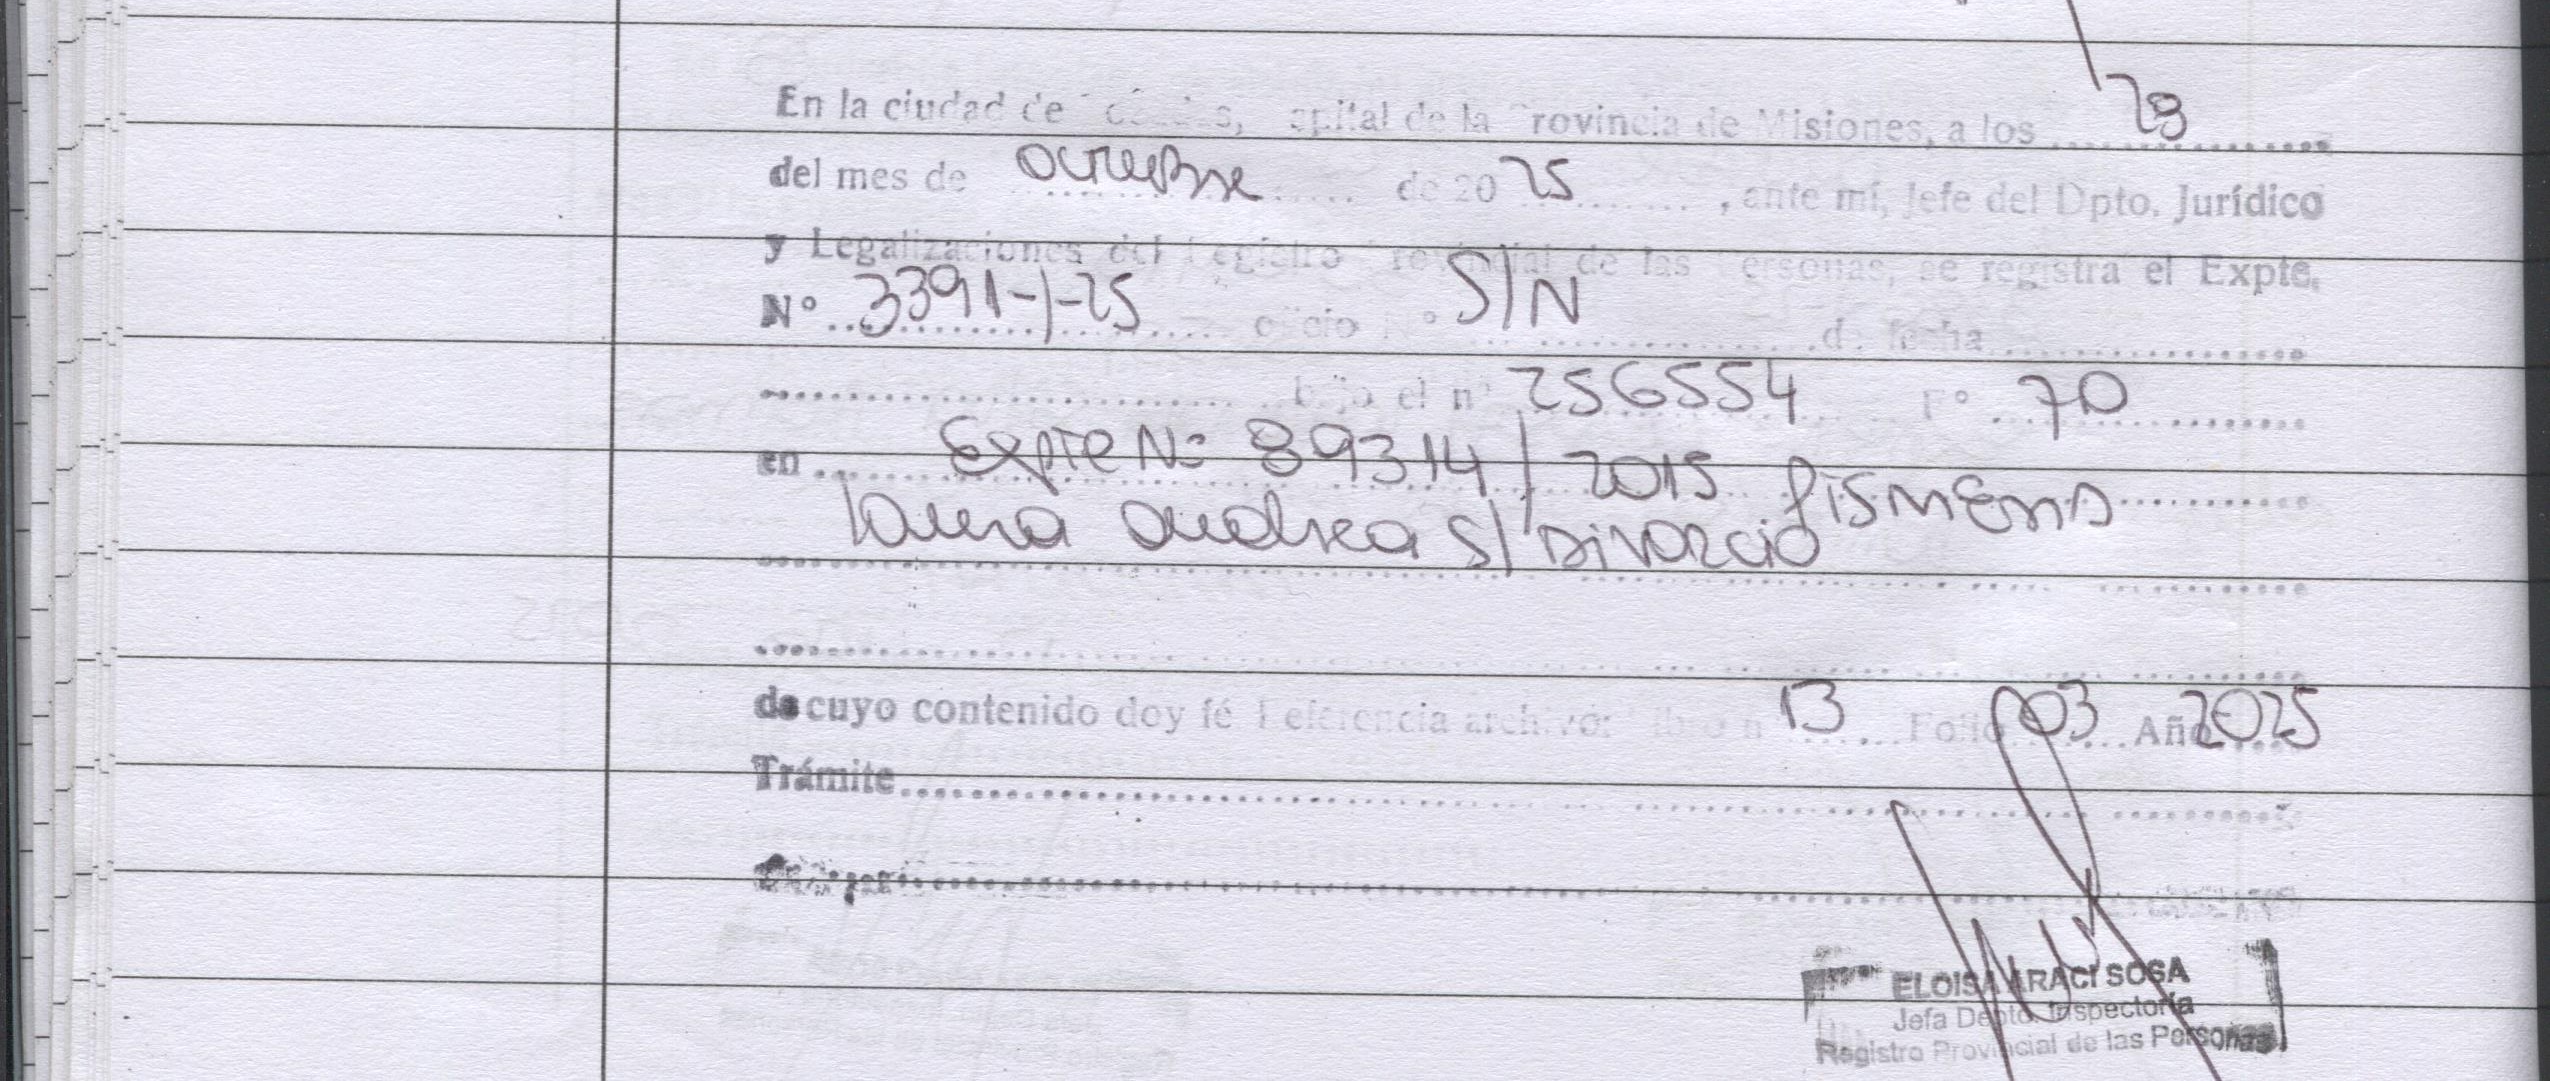 En la ciudad de Posadas, Capital de la Provincia de Misiones, a los 28
del mes de octubre de 2025, ante mí, Jefe del Dpto. Jurídico
y Legalizaciones del Registro Provincial de las Personas, se registra el Expte.
Nº 3391-1-25 oficio Nº S/N de fecha
bajo el nº 256554 Fº 70
en Expte Nº 89314/2015
Laura Andrea S/ Divorcio
de cuyo contenido doy fé Referencia archivo: libro n 13 Folio 03 Año 2025
Trámite
ELOISA ARACI SOSA
Jefa Depto. Inspectoría
Registro Provincial de las Personas